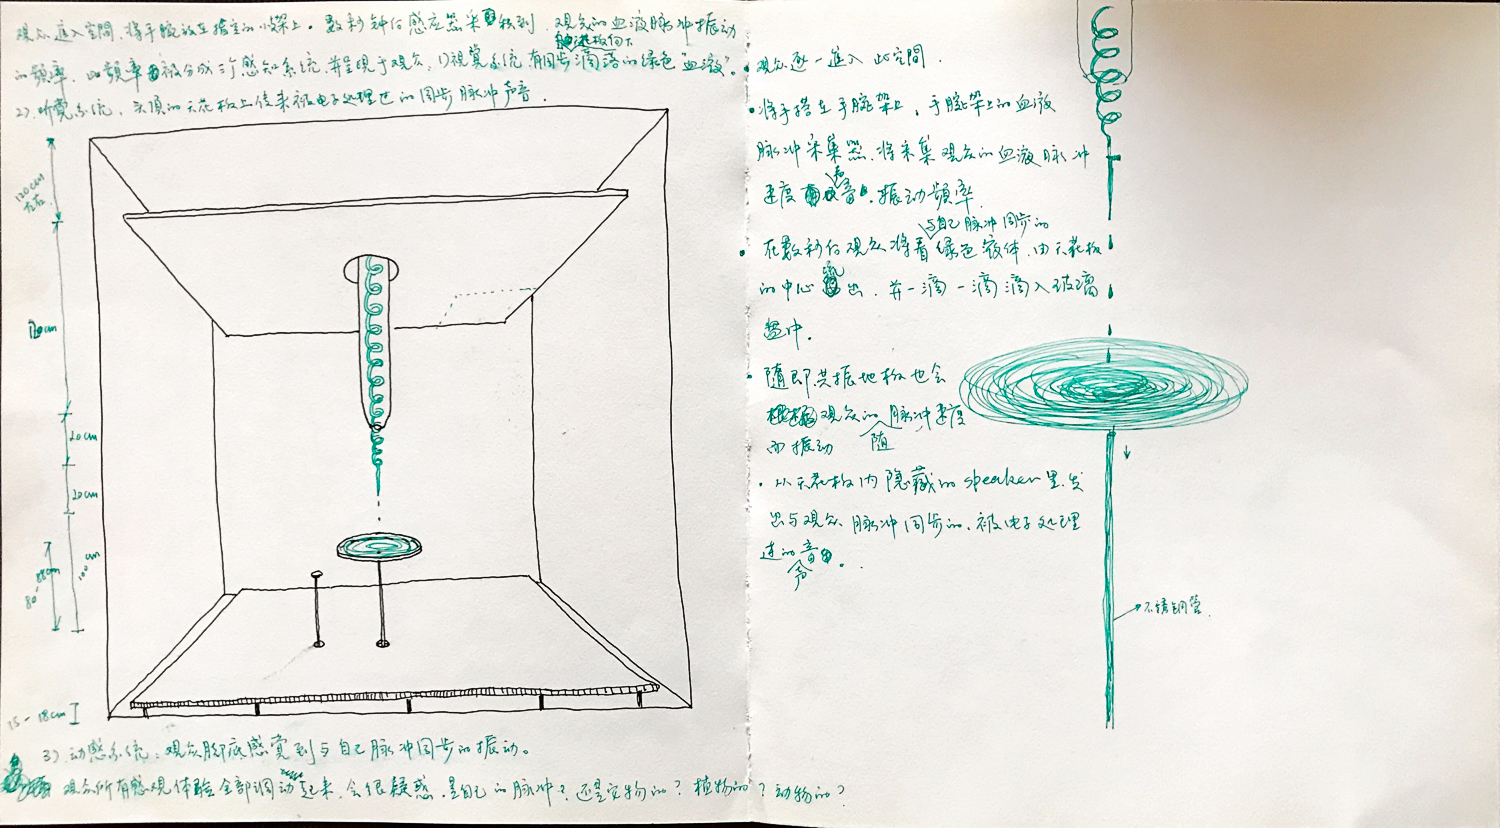 观众进入空间，将手腕放在指定的小架上。数秒钟后感应器采积到，观众的血液脉冲振动
的频率，此频率被分成三个感知系统，并呈现于观众，1)视觉系统，有同步滴落的绿色"血液"。
2)听觉系统，头顶的天花板上传来被电子处理过的同步脉冲声音。
120cm
左右
120cm
20cm
20cm
100cm
80-88cm
15-18cm
3)动感系统：观众脚底感觉到与自己脉冲同步的振动。
观众所有感观体验全部调动起来，会很疑惑，是自己的脉冲？还是宇物的？植物的？动物的？
·观众逐一进入此空间.
·将手搭在手腕架上，手腕架上的血液
脉冲采集器，将采集观众的血液脉冲
速度 声音，振动频率.
与自己脉冲同步的
·在数秒后观众将看绿色液体，由天花板
的中心流出，并一滴一滴滴入玻璃
盘中.
·随即共振地板也会
随观众的脉冲速度
而振动
·从天花板内隐藏的speaker里发
出与观众脉冲同步的，被电子处理
过的声音。
不锈钢管.